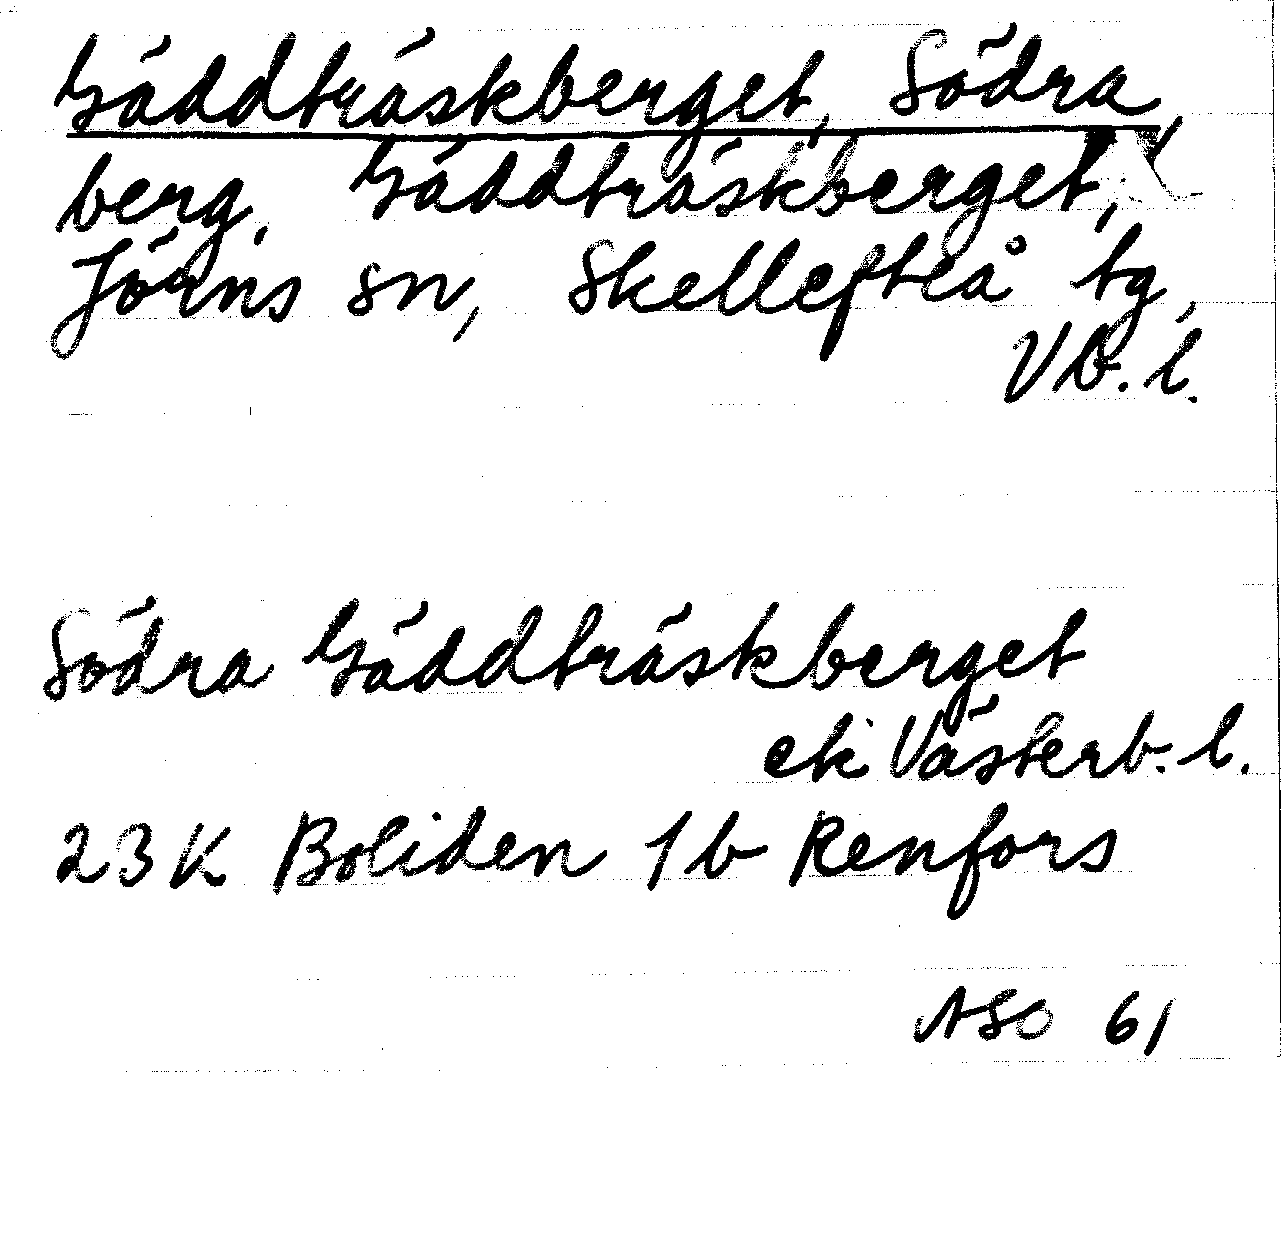 Gäddträskberget, Södra,
berg, Gäddträskberget,
Jörns sn, Skellefteå tg,
Vb. l.
Södra Gäddträskberget
ek Västerb. l.
23 K Boliden 1 b Renfors
ASO 61